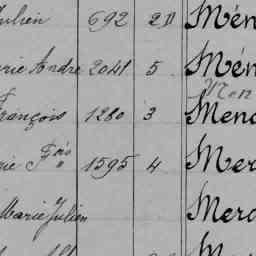 Julien 692 2D Mén
rie Andre 2041 5 Mén
Mon
François 1280 3 Mend
rie Fois 1595 4 Mer
Marie Julien Merd